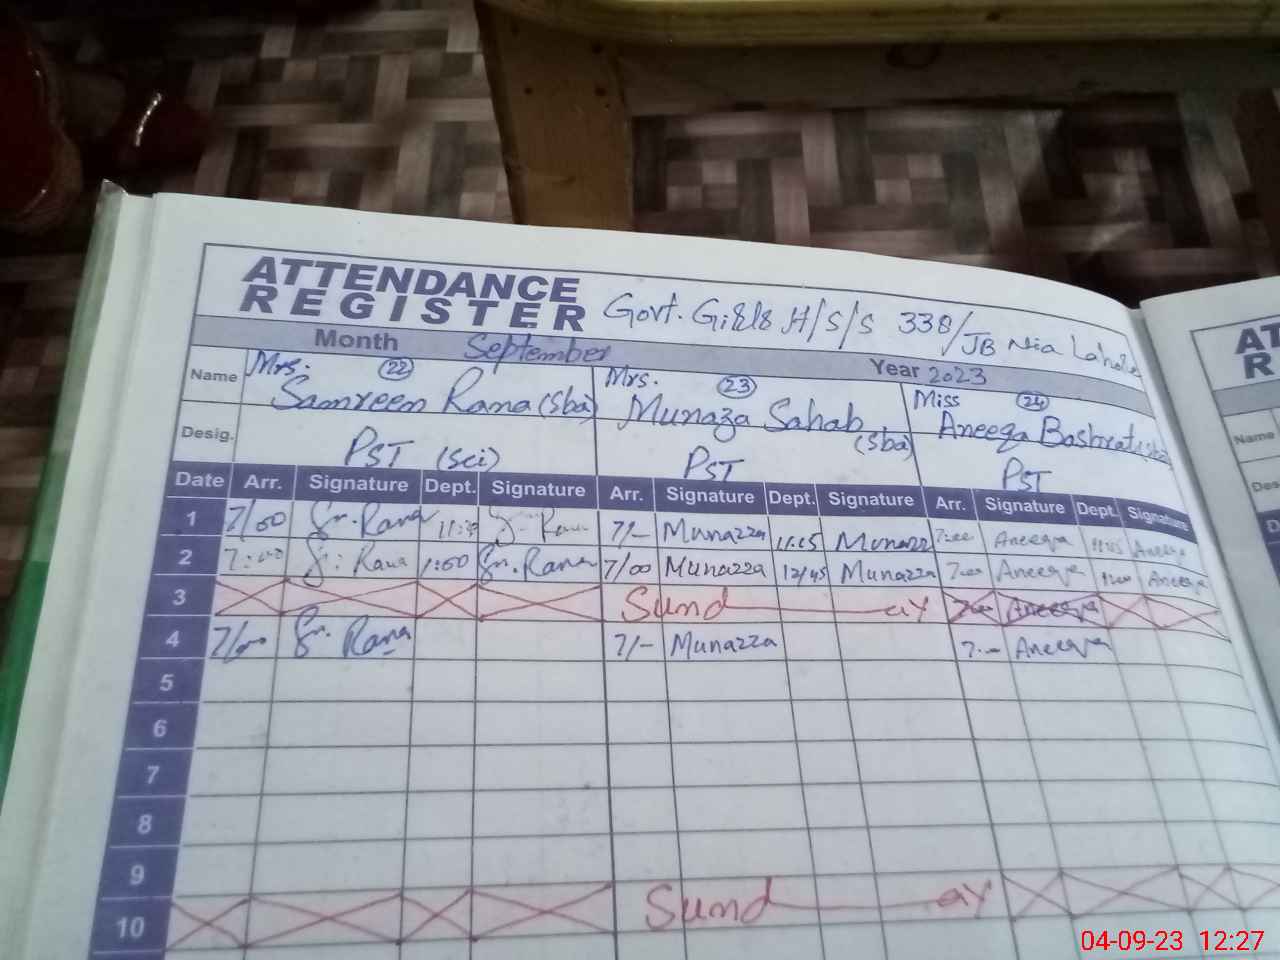 ATTENDANCE
REGISTER
Govt. Girls H/S/S 338/JB Nia Lahore
Month September Year 2023
Name Mrs. 22 Samreen Rana (sba) Mrs. 23 Munaza Sahab (sba) Miss 24 Aneeqa Basharat
Desig. PST (Sci) PST PST
Date Arr. Signature Dept. Signature Arr. Signature Dept. Signature Arr. Signature Dept. Signature
1 7/00 Sr. Rana Rana 7/- Munazza 11:15 Munazza 7:00 Aneeqa Aneeqa
2 7:00 S: Rana 1:00 Sr. Rana 7/00 Munazza 12/45 Munazza 7:00 Aneeqa Aneeqa
3 Sund ay Aneeqa
4 7/00 Sr. Rana 7/- Munazza 7:- Aneeqa
5
6
7
8
9
10 Sund ay
AT
R
Name
Des
D
04-09-23 12:27